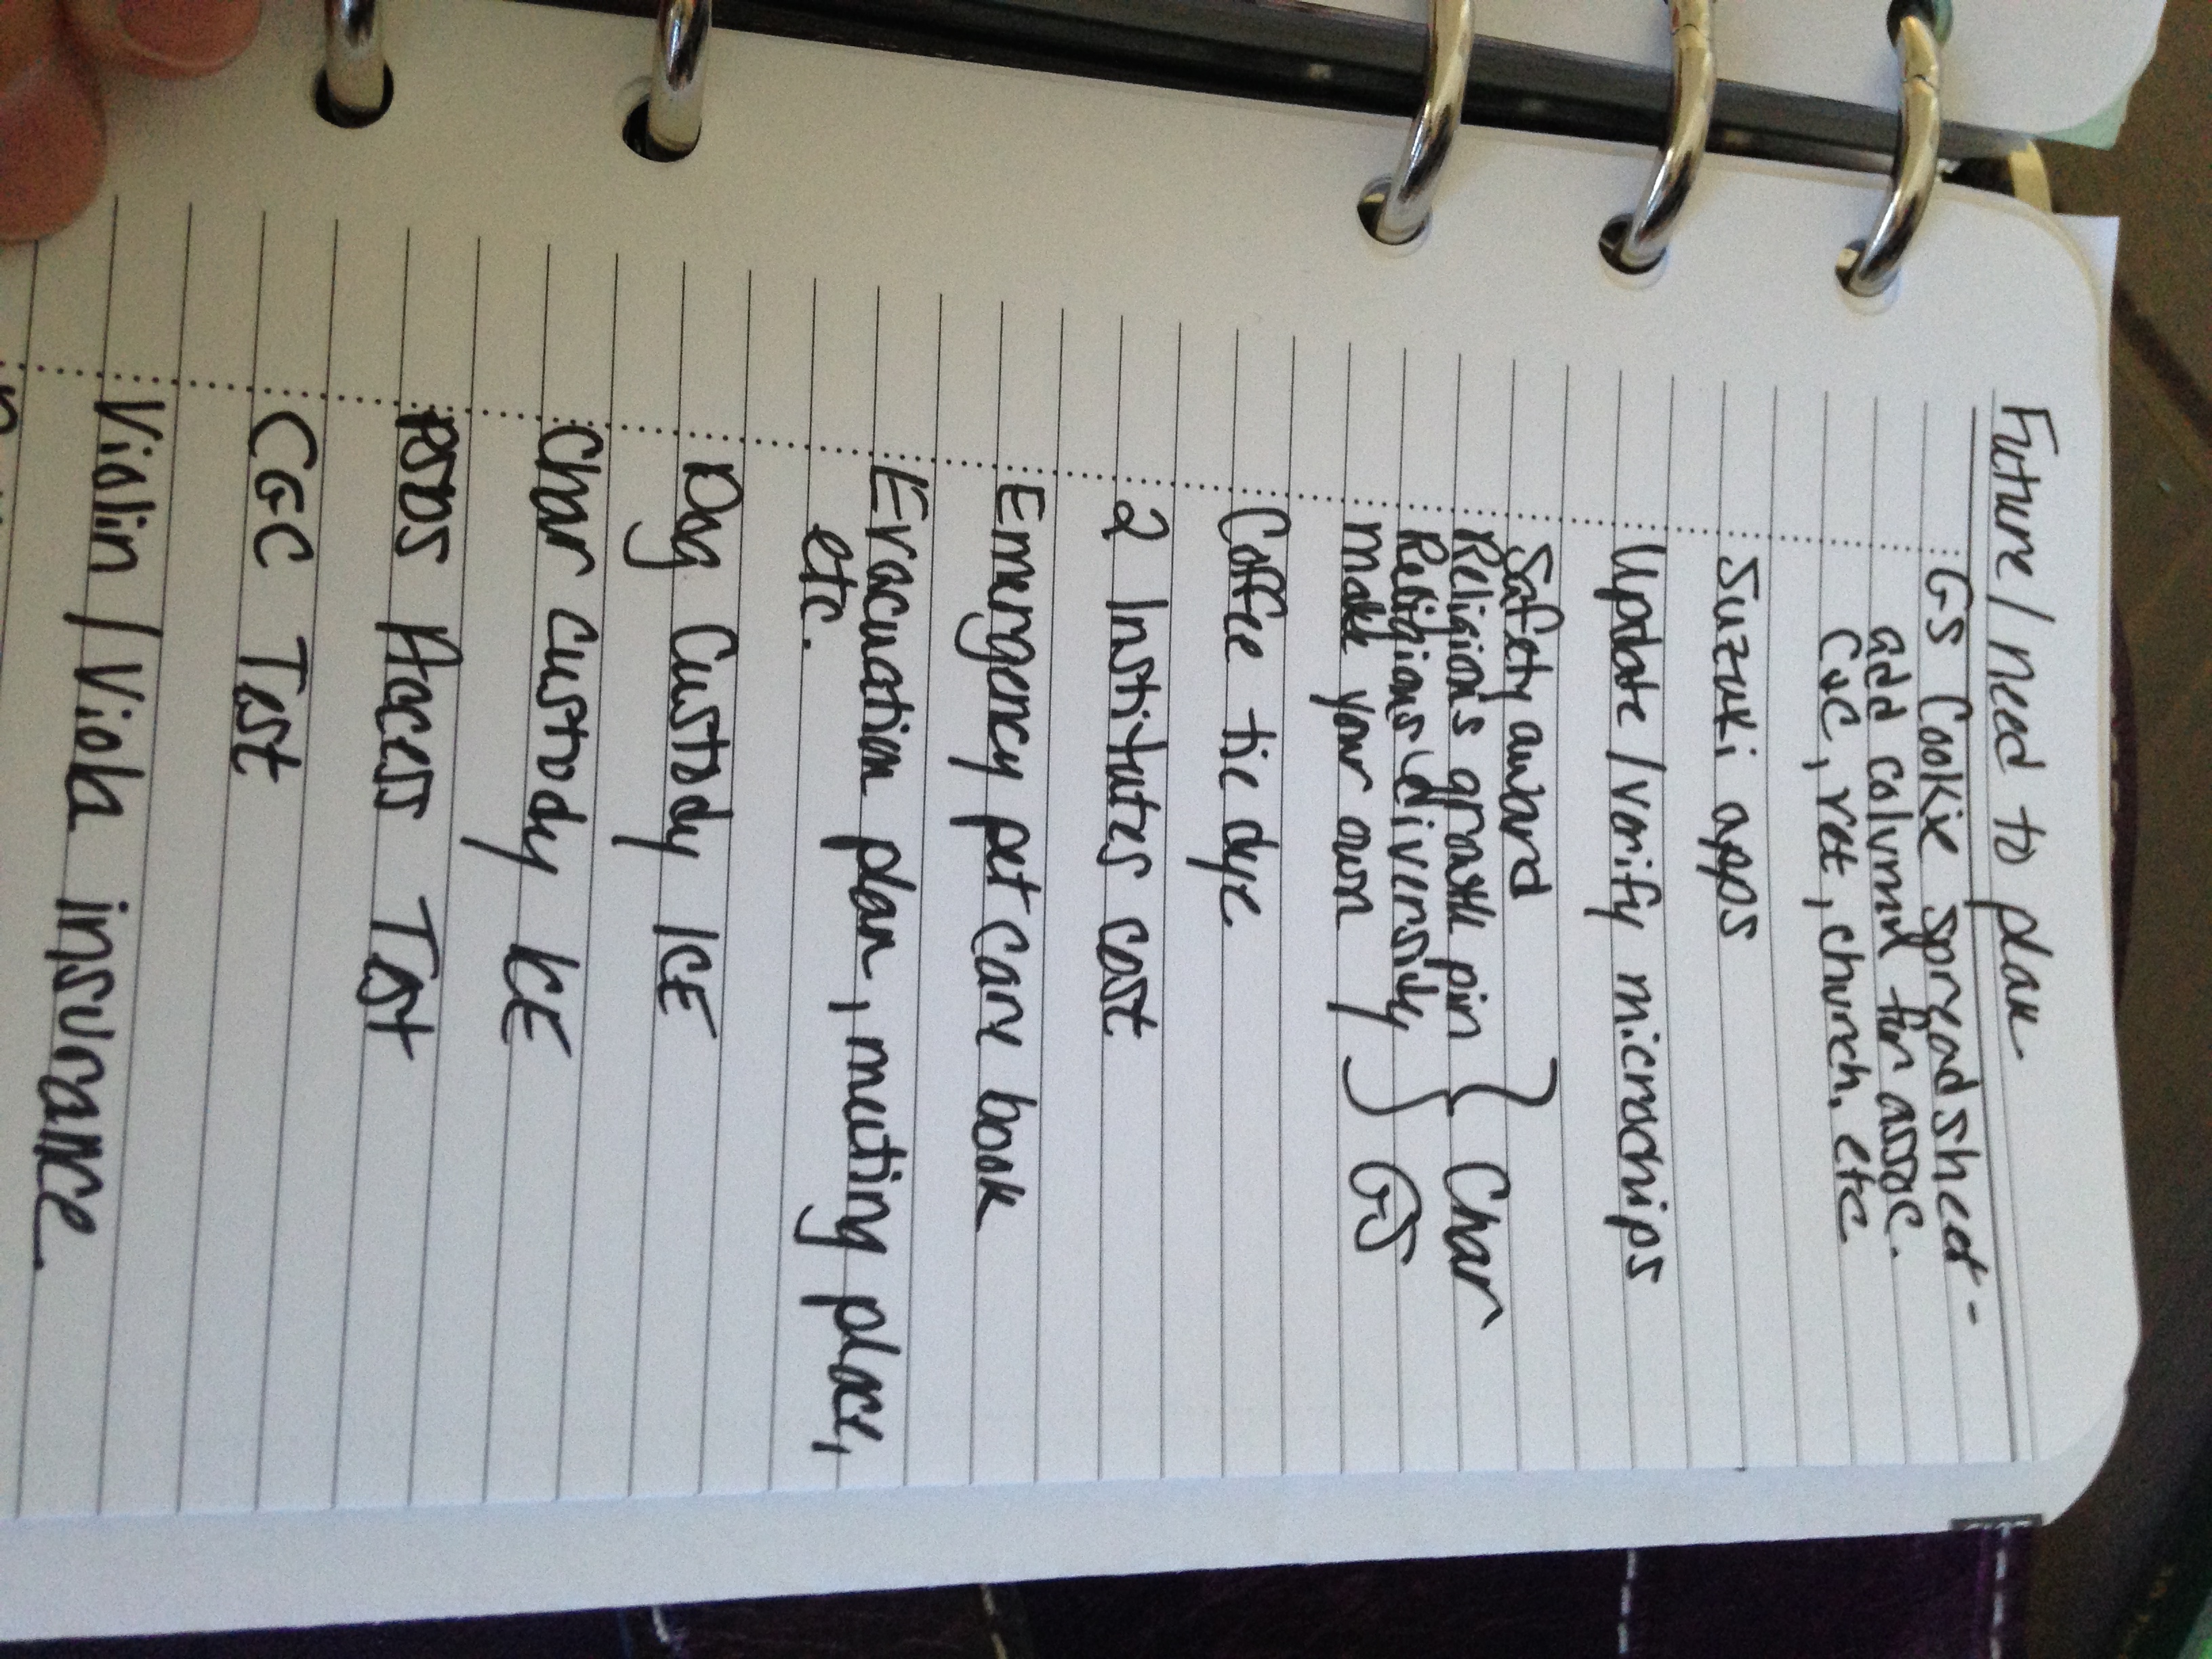 Future / need to plan
GS Cookie spreadsheet -
add column for assoc.
CSC, vet, church, etc
Suzuki apps
Update / verify microchips
Safety award
Religions growth pin } Char
Religions diversity } GS
make your own
Coffee tie dye
2 Institutes cost
Emergency pet care book
Evacuation plan, meeting place,
etc.
Dog Custody ICE
Char custody ICE
Access Test
CGC Test
Violin / Viola insurance